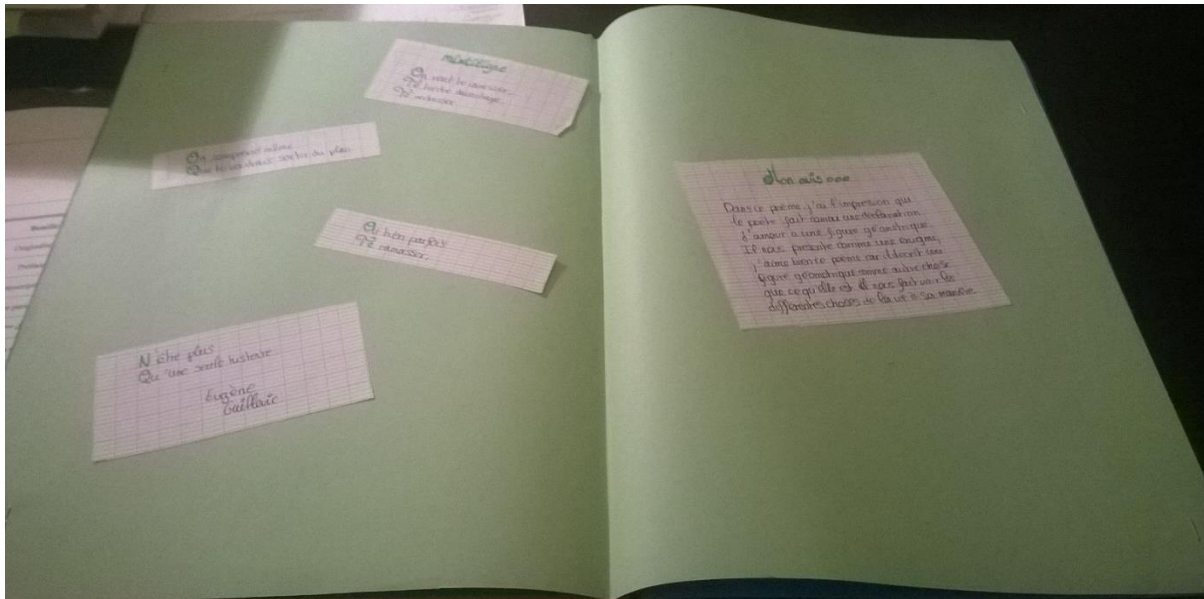 On comprend même
Que tu voudrais sortir du plan
Ou bien parfois
Te ramasser.
N'être plus
Qu'une seule histoire
Eugène
Guillevic
Mon avis ...
Dans ce poème j'ai l'impression que
le poète fait comme une déclaration
d'amour a une figure géométrique.
Il nous presente comme une enigme,
j'aime bien ce poème car il décrit une
figure géometrique comme autre chose
que ce qu'elle est il nous fait voir les
differentes choses de la vie a sa manière